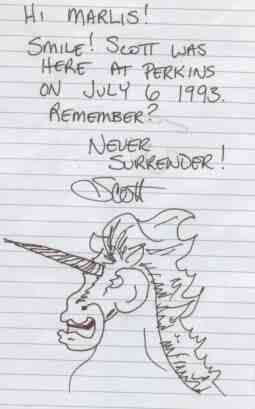 Hi Marlis!
Smile! Scott was
here at Perkins
on July 6 1993.
Remember?
Never
Surrender!
Scott